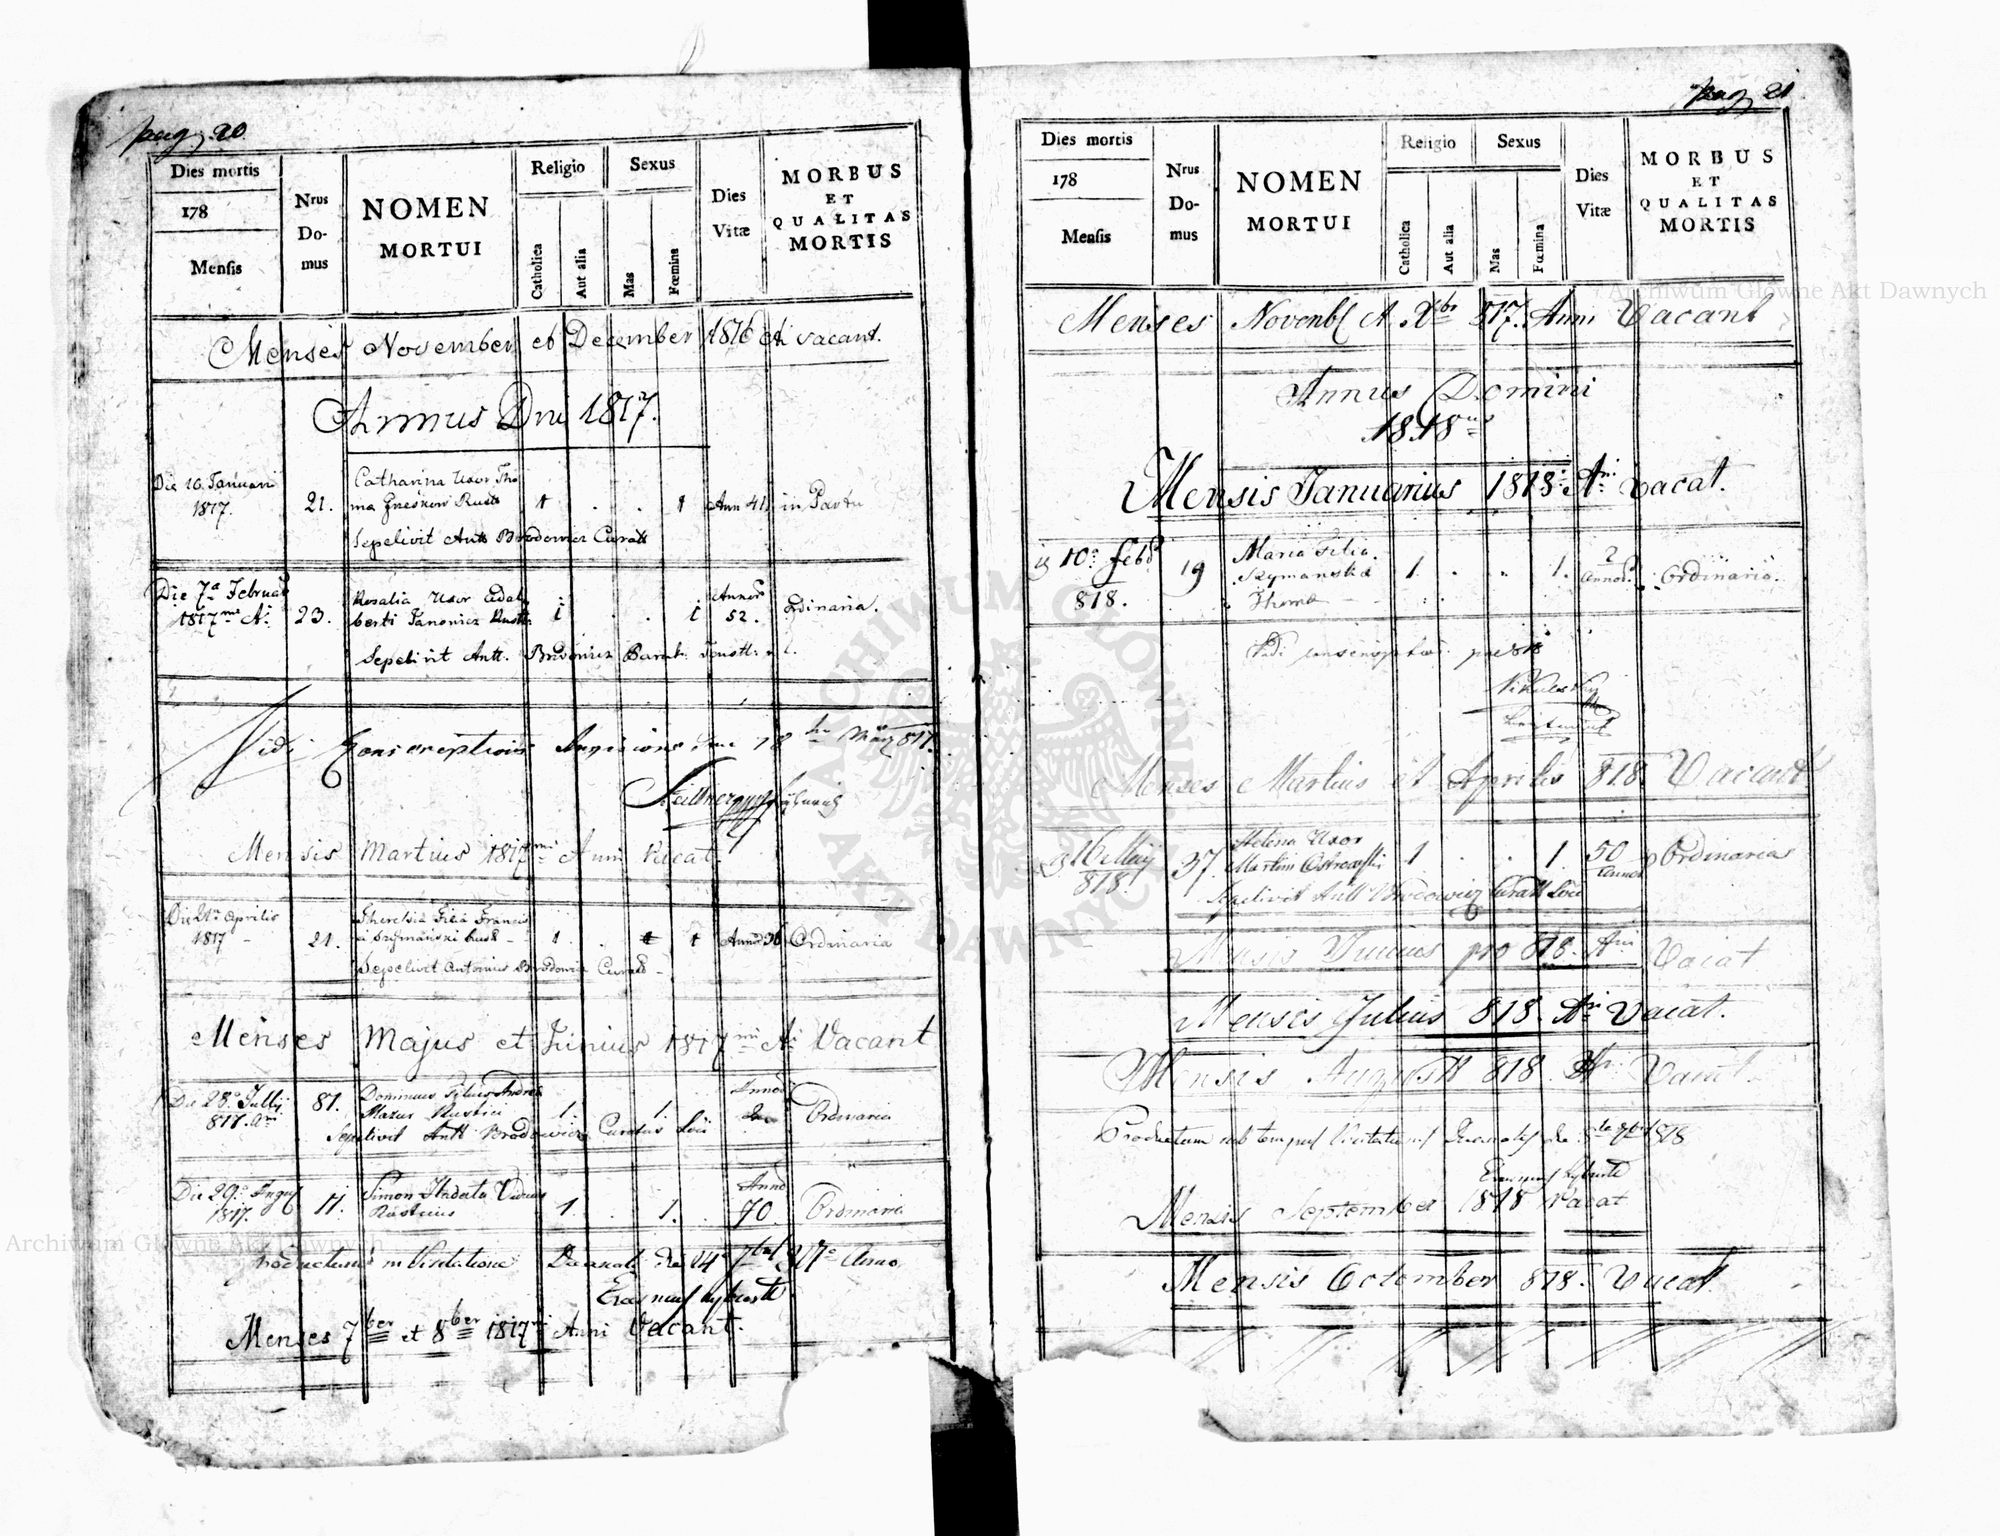 pag. 20.
Dies mortis
178
Mensis
Nrus Do-mus
NOMEN
MORTUI
Religio
Catholica
Aut alia
Sexus
Mas
Fœmina
Dies
Vitæ
MORBUS
ET
QUALITAS
MORTIS
Menses November et December 1816 Ai vacant.
Annus Dni 1817.
Die 10. Januari
1817.
21.
Catharina Uxor Tho
ma
1
.
.
1
Ann 41
in Partu
Sepelivit Antt Brodowicz Curatt
Die 7a Februar
1817mi Ai
23.
Rosalia Uxor Adal
berti Janowicz Rustt
1
.
.
1
Annor
52.
Ordinaria.
Sepelivit Antt. Brodowicz
Vidi
817.
Mensis Martius 1817mi Anni Vacat
Die 21a Aprilis
1817
21.
Theresia Filia Francis
ci Szymański Rust
1.
.
1
Annor 36
Ordinaria
Sepelivit Antonius Brodowicz Curatt
Menses Majus et Junius 1817mi Ai Vacant
Die 28a Julij
817. Ani
81.
Filius Andreæ
Mazur Rustici
1.
1.
Annor
Ordinaria
Sepelivit Antt Brodowicz Curatus Loci
Die 29a Augus
1817.
11.
Simon
Rusticus
1.
1.
Anno
70
Ordinaria
Productum in Visitatione Decanali Die 14a 7bris 817o Anno
Menses 7ber et 8ber 1817mi Anni Vacant.
pag. 21
Dies mortis
178
Mensis
Nrus Do-mus
NOMEN
MORTUI
Religio
Catholica
Aut alia
Sexus
Mas
Fœmina
Dies
Vitæ
MORBUS
ET
QUALITAS
MORTIS
Menses Novenbl et Xbr 817. Anni Vacant
Annus Domini
1818us
Mensis Januarius 1818 Ani Vacat.
10a Feb
818.
19
Maria Filia
Szymanska
Thoma
1.
.
.
1.
2
Annor.
Ordinaria.
Vidi
Menses Martius et Aprilis 818. Vacant
16 Maij
818.
37.
Helena Uxor
Martini
1
.
.
1.
50
Annor
Ordinaria
Sepelivit Antt Brodowicz Curatt Loci
Mensis Junius pro 818. Ani Vacat
Mensis Julius 818. Ani Vacat.
Mensis Augustt 818 Ani Vacat.
Productum sub tempus Visitationis 1818
Mensis September 1818 Vacat
Mensis Octomber 818. Vacat
Archiwum Główne Akt Dawnych
Archiwum Główne Akt Dawnych
ARCHIWUM GŁÓWNE AKT DAWNYCH